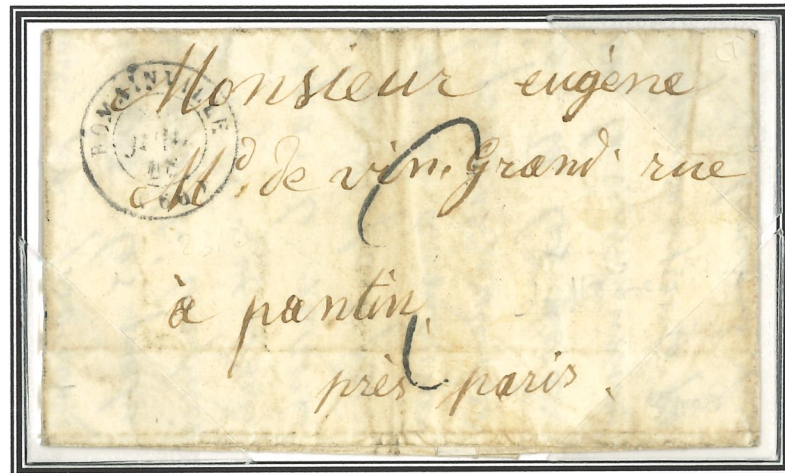 ROMAINVILLE
(60)
Monsieur eugène
Md. de vin. Grand rue
à pantin
près paris.